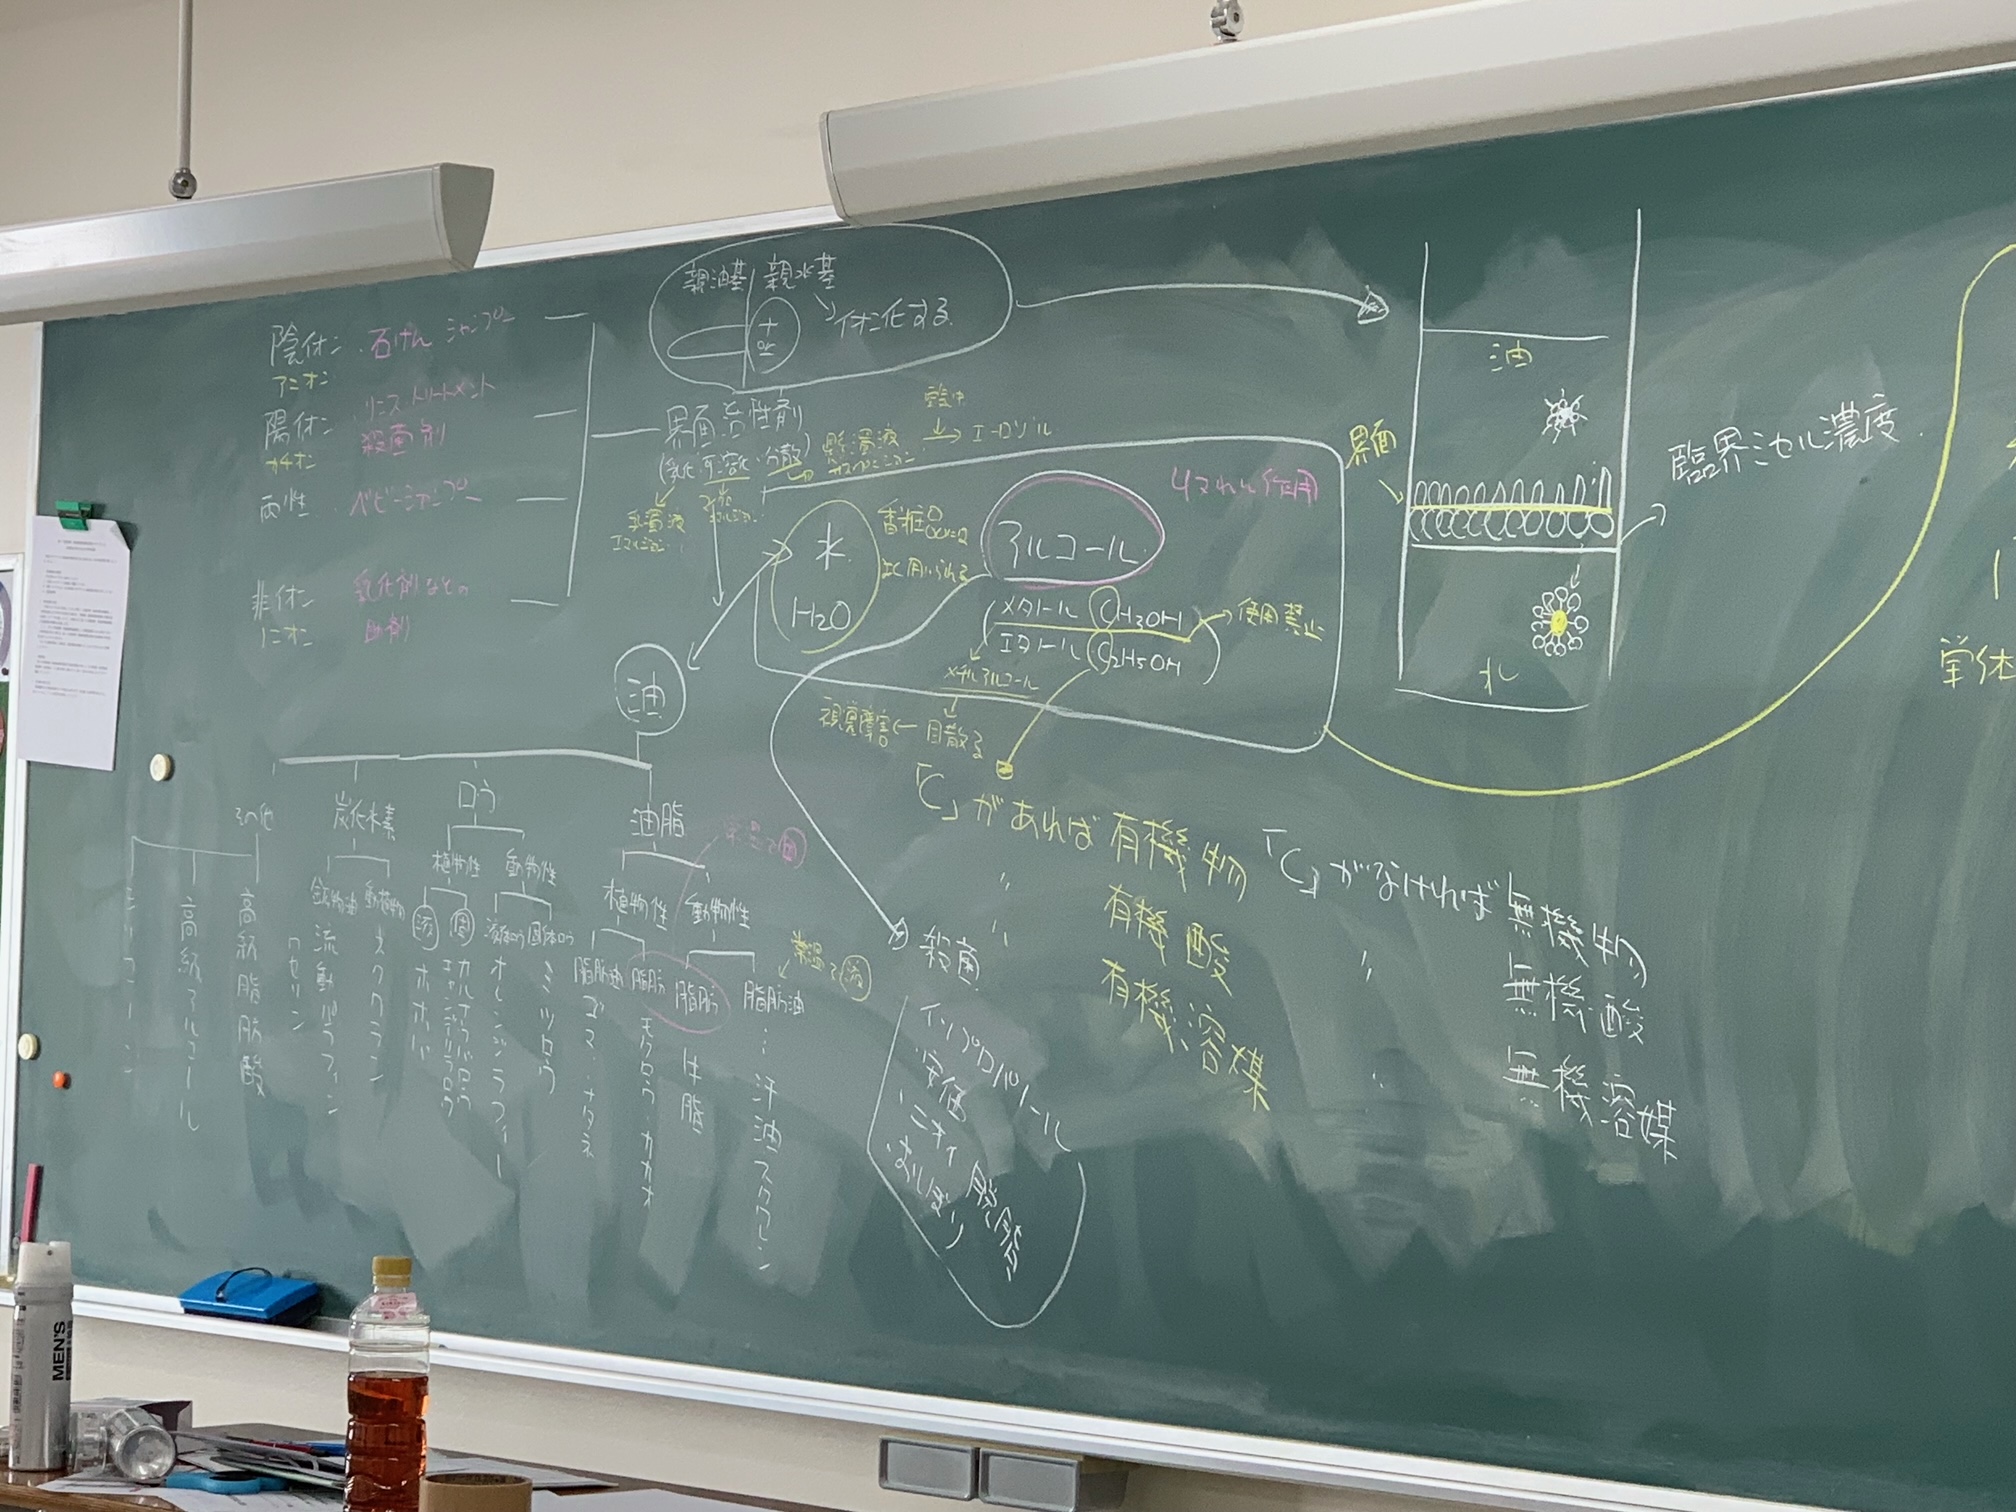 親油基 親水基
イオン化する
陰イオン 石けん シャンプー
アニオン
陽イオン リンス トリートメント
カチオン 殺菌剤
両性 ベビーシャンプー
非イオン 乳化剤などの
ノニオン 助剤
界面活性剤
(乳化・可溶化・分散)
乳濁液
懸濁液
空気中
エーロゾル
水
H2O
香粧品
に用いられる
アルコール
収れん作用
メタノール CH3OH
使用禁止
エタノール C2H5OH
メチルアルコール
目散る
視覚障害
油
界面
臨界ミセル濃度
油
水
単体
その他
炭化水素
ロウ
油脂
シリコーン
高級アルコール
高級脂肪酸
鉱物油
ワセリン
流動パラフィン
動植物
スクワラン
植物性
液
ホホバ
固
カルナウバロウ
キャンデリラロウ
動物性
液体ロウ
オレンジラフィー
固体ロウ
ミツロウ
植物性
脂肪油
ゴマ・ナタネ
脂肪
モクロウ・カカオ
動物性
脂肪
牛脂
脂肪油
肝油スクワレン
常温で固
常温で液
「C」があれば有機物
〃 有機酸
〃 有機溶媒
「C」がなければ無機物
〃 無機酸
〃 無機溶媒
殺菌
イソプロパノール
安価
・ニオイ 脱脂
・おしぼり
MEN'S